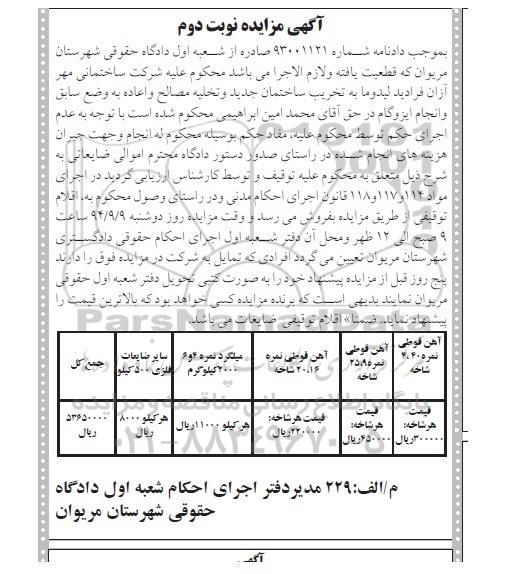 آگهی مزایده نوبت دوم
بموجب دادنامه شماره ۹۳۰۰۱۱۲۱ صادره از شعبه اول دادگاه حقوقی شهرستان
مریوان که قطعیت یافته ولازم الاجرا می باشد محکوم علیه شرکت ساختمانی مهر
آژان فرادید لیدوما به تخریب ساختمان جدید وتخلیه مصالح واعاده به وضع سابق
وانجام ایزوگام در حق آقای محمد امین ابراهیمی محکوم شده است با توجه به عدم
اجرای حکم توسط محکوم علیه، مفاد حکم بوسیله محکوم له انجام وجهت جبران
هزینه های انجام شده در راستای صدور دستور دادگاه محترم اموالی ضایعاتی به
شرح ذیل متعلق به محکوم علیه توقیف و توسط کارشناس ارزیابی گردید در اجرای
مواد ۱۱۴و۱۱۷و۱۱۸ قانون اجرای احکام مدنی ودر راستای وصول محکوم به، اقلام
توقیفی از طریق مزایده بفروش می رسد و وقت مزایده روز دوشنبه ۹۴/۹/۹ ساعت
۹ صبح الی ۱۲ ظهر ومحل آن دفتر شعبه اول اجرای احکام حقوقی دادگستری
شهرستان مریوان تعیین می گردد افرادی که تمایل به شرکت در مزایده فوق را دارند
پنج روز قبل از مزایده پیشنهاد خود را به صورت کتبی تحویل دفتر شعبه اول حقوقی
مریوان نمایند بدیهی است که برنده مزایده کسی خواهد بود که بالاترین قیمت را
پیشنهاد نماید. ضمنا» اقلام توقیفی ضایعات می باشد.
آهن قوطی نمره ۴،۴۰ شاخه | آهن قوطی نمره ۲۵،۹ شاخه | آهن قوطی نمره ۲۰،۱۶ شاخه | میلگرد نمره ۴و۶ ۲۰۰۰کیلوگرم | سایر ضایعات فلزی ۵۰۰ کیلو | جمع کل
قیمت هرشاخه: ۳۰۰۰۰۰ریال | قیمت هرشاخه: ۴۵۰۰۰۰ریال | قیمت هرشاخه: ۲۲۰۰۰۰ریال | هر کیلو ۱۱۰۰۰ریال | هر کیلو ۸۰۰۰ ریال | ۵۳۶۵۰۰۰۰ ریال
م/الف:۲۲۹ مدیردفتر اجرای احکام شعبه اول دادگاه
حقوقی شهرستان مریوان
ParsNamadData
پایگاه اطلاع رسانی مناقصه و مزایده
۰۲۱-۸۸۳۴۹۶۷۰-۵
آگهی